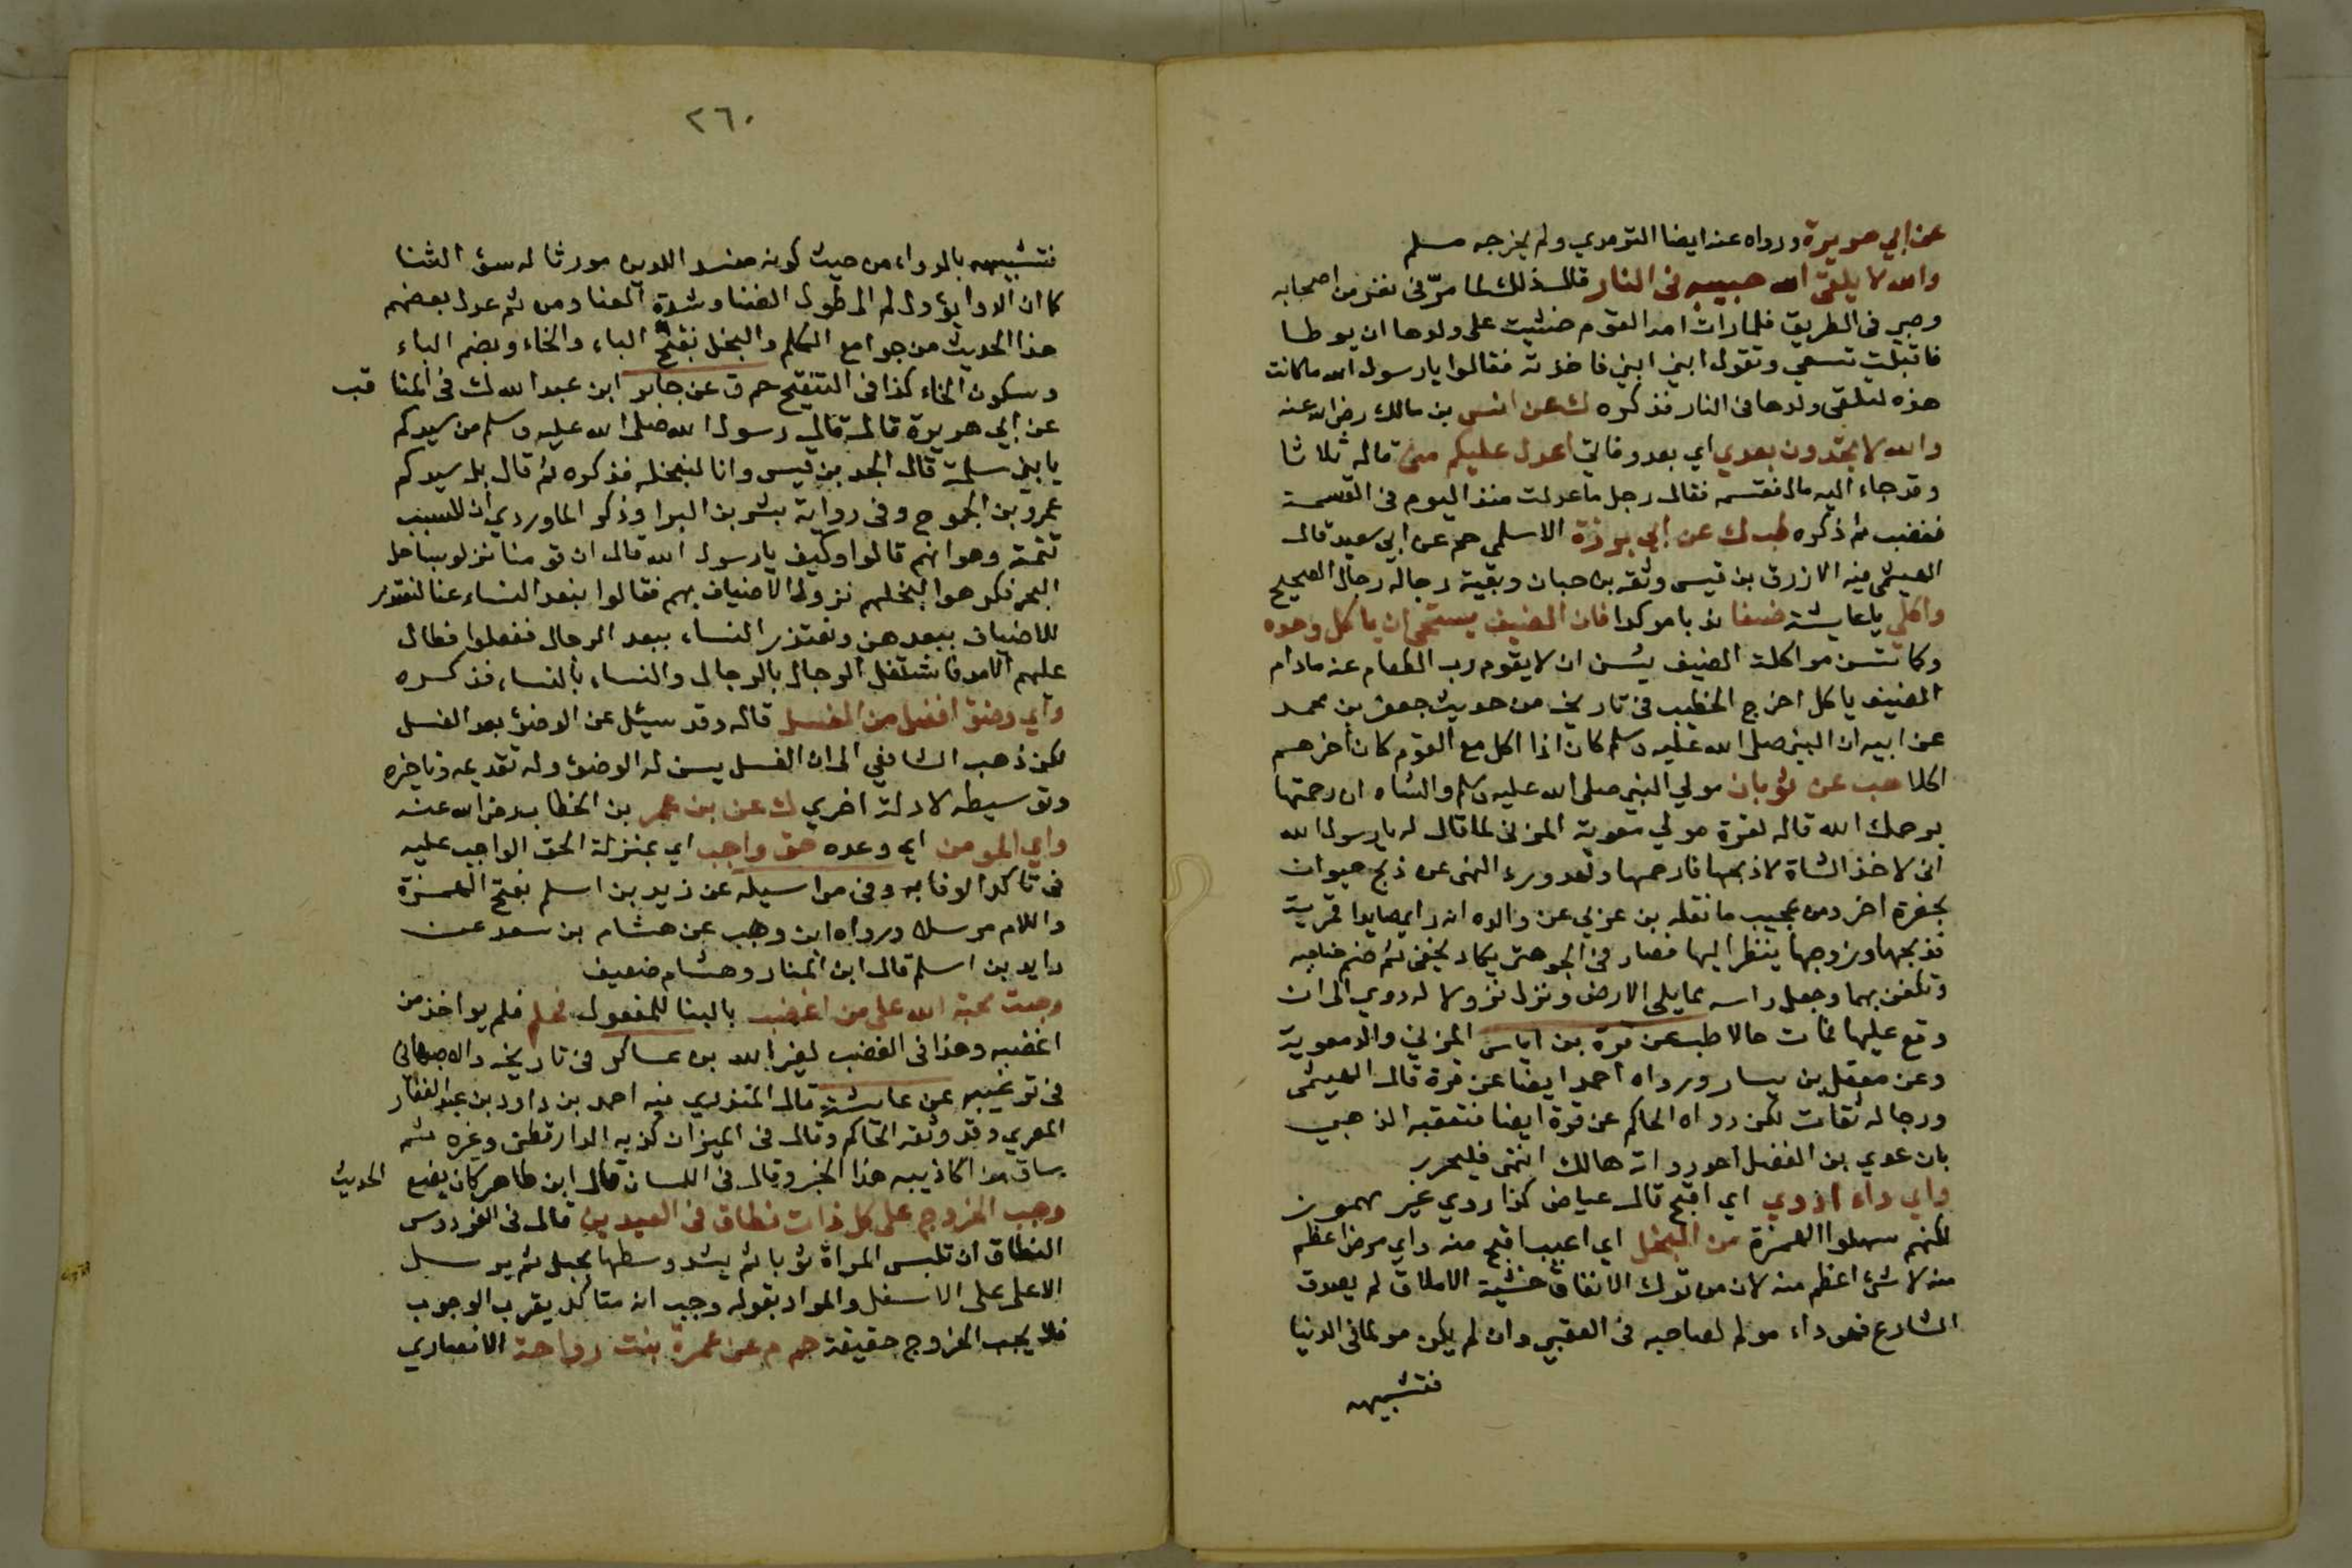 عن ابي هريرة ورواه عنه ايضا الترمدي ولم يخرجه مسلم
والله لا يلقى الله حبيبه في النار قال ذلك لما مرّ في نفر من اصحابه
وصبي في الطريق فلما رات امه القوم خشيت على ولدها ان يوطا
فاقبلت تسعي وتقول ابني ابني فاخذته فقالوا يا رسول الله ما كانت
هذه لتلقى ولدها في النار فذكره ك عن انس بن مالك رضي الله عنه
والله لا تجدون بعدي اي بعد وفاتي اعدل عليكم مني قاله ثلاثا
وقد جاء اليه مال فقسمه فقال رجل ما عدلت منذ اليوم في القسمة
فغضب ثم ذكره طب ك عن ابي برزة الاسلمي حم عن ابي سعيد قال
الهيثمي فيه الازرق بن قيس وثقه بن حبان وبقية رجاله رجال الصحيح
واكلي يا عايشة ضيفا ندبا موكدا فان الضيف يستحي ان ياكل وحده
وكما تسن مواكلة الضيف يسن ان لا يقوم رب الطعام عنه مادام
الضيف ياكل اخرج الخطيب في تاريخه من حديث جعفر بن محمد
عن ابيه ان النبي صلى الله عليه وسلم كان اذا اكل مع القوم كان اخرهم
اكلا هب عن ثوبان مولي النبي صلى الله عليه وسلم والشاه ان رحمتها
يرحمك الله قاله لقرة مولي معوية المزني لما قال له يا رسول الله
اني لاخذ الشاة لاذبحها فارحمها وقد ورد النهى عن ذبح حيوان
بحضرة اخر ومن عجيب ما نقله بن عربي عن والده انه راى صايدا قمرية
فذبحها وزوجها ينظر اليها فصار في الجو حتى يكاد يخفى ثم ضم جناحيه
وتكفن بهما وجعل راسه مما يلي الارض ونزل نزولا له دوي الى ان
وقع عليها فمات حالا طب عن قرة بن اياس المزني والد معوية
وعن معقل بن يسار ورواه احمد ايضا عن قرة قال الهيثمى
ورجاله ثقات لكن رواه الحاكم عن قرة ايضا فتعقبه الذهبي
بان عدي بن الفضل احد رواته هالك انتهى فليحرر
واي داء ادوي اي اقبح قال عياض كذا روي غير مهموز
لكنهم سهلوا الهمزة من البخل اي اعيب اقبح منه واي مرض اعظم
منه لا شئ اعظم منه لان من ترك الانفاق خشية الاملاق لم يصدق
الشارع فهو داء مولم لصاحبه في العقبي وان لم يكن مولما في الدنيا
فتشبيهه
٢٦٠
فتشبيهه بالدواء من حيث كونه مفسد اللدين مورثا له سوء الثنا
كما ان الدوا يؤول لم الى طول الضنا وشدة العنا ومن ثم عدل بعضهم
هذا الحديث من جوامع الكلم والبخل بفتح الباء والخاء وبضم الباء
وسكون الخاء كذا في التنقيح حم ق عن جابر ابن عبد الله ك في المناقب
عن ابي هريرة قال قال رسول الله صلى الله عليه وسلم من سيدكم
يا بني سلمة قال الجد بن قيس وانا لنبخله فذكره ثم قال بل سيدكم
عمرو بن الجموح وفي رواية بشر بن البرا وذكر الماوردي ان للسبب
تتمة وهو انهم قالوا وكيف يا رسول الله قال ان قومنا نزلو بساحل
البحر فكرهوا لبخلهم نزول الاضياف بهم فقالوا ببعد النساء عنا لنعتذر
للاضياف ببعدهن وتعتذر النساء ببعد الرجال ففعلوا فطال
عليهم الامد فاشتغل الرجال بالرجال والنساء بالنساء فذكره
واي وضوء افضل من الغسل قاله وقد سيئل عن الوضوء بعد الغسل
لكن ذهب الشافعي الى ان الغسل يسن له الوضوء وله تقديمه وتاخيره
وتوسيطه لادلة اخري ك عن بن عمر بن الخطاب رضي الله عنه
واي المومن اي وعده حق واجب اي بمنزلة الحق الواجب عليه
في تاكد الوفا به د في مراسيله عن زيد بن اسلم بفتح الهمزة
واللام مرسلا ورواه ابن وهب عن هشام بن سعد عن
زايد بن اسلم قال ابن المنار وهشام ضعيف
وجبت محبة الله على من اغضب بالبنا للمفعول فحلم فلم يواخذ من
اغضبه وهذا في الغضب لغير الله بن عساكر في تاريخه والاصبهاني
في ترغيبه عن عايشة قال المنذري فيه احمد بن داود بن عبد الغفار
المصري وقد وثقه الحاكم وقال في الميزان كذبه الدارقطني وغيره ثم
ساق من اكاذيبه هذا الخبر وقال في اللسان قال ابن طاهر كان يضع الحديث
وجب الخروج على كل ذات نطاق في العيدين قال في الفردوس
النطاق ان تلبس المراة ثوبا ثم يشد وسطها بحبل ثم يرسل
الاعلى على الاسفل والمراد بقوله وجب انه متاكد يقرب الوجوب
فلا يجب الخروج حقيقة حم م عن عمرة بنت رواحة الانصاري